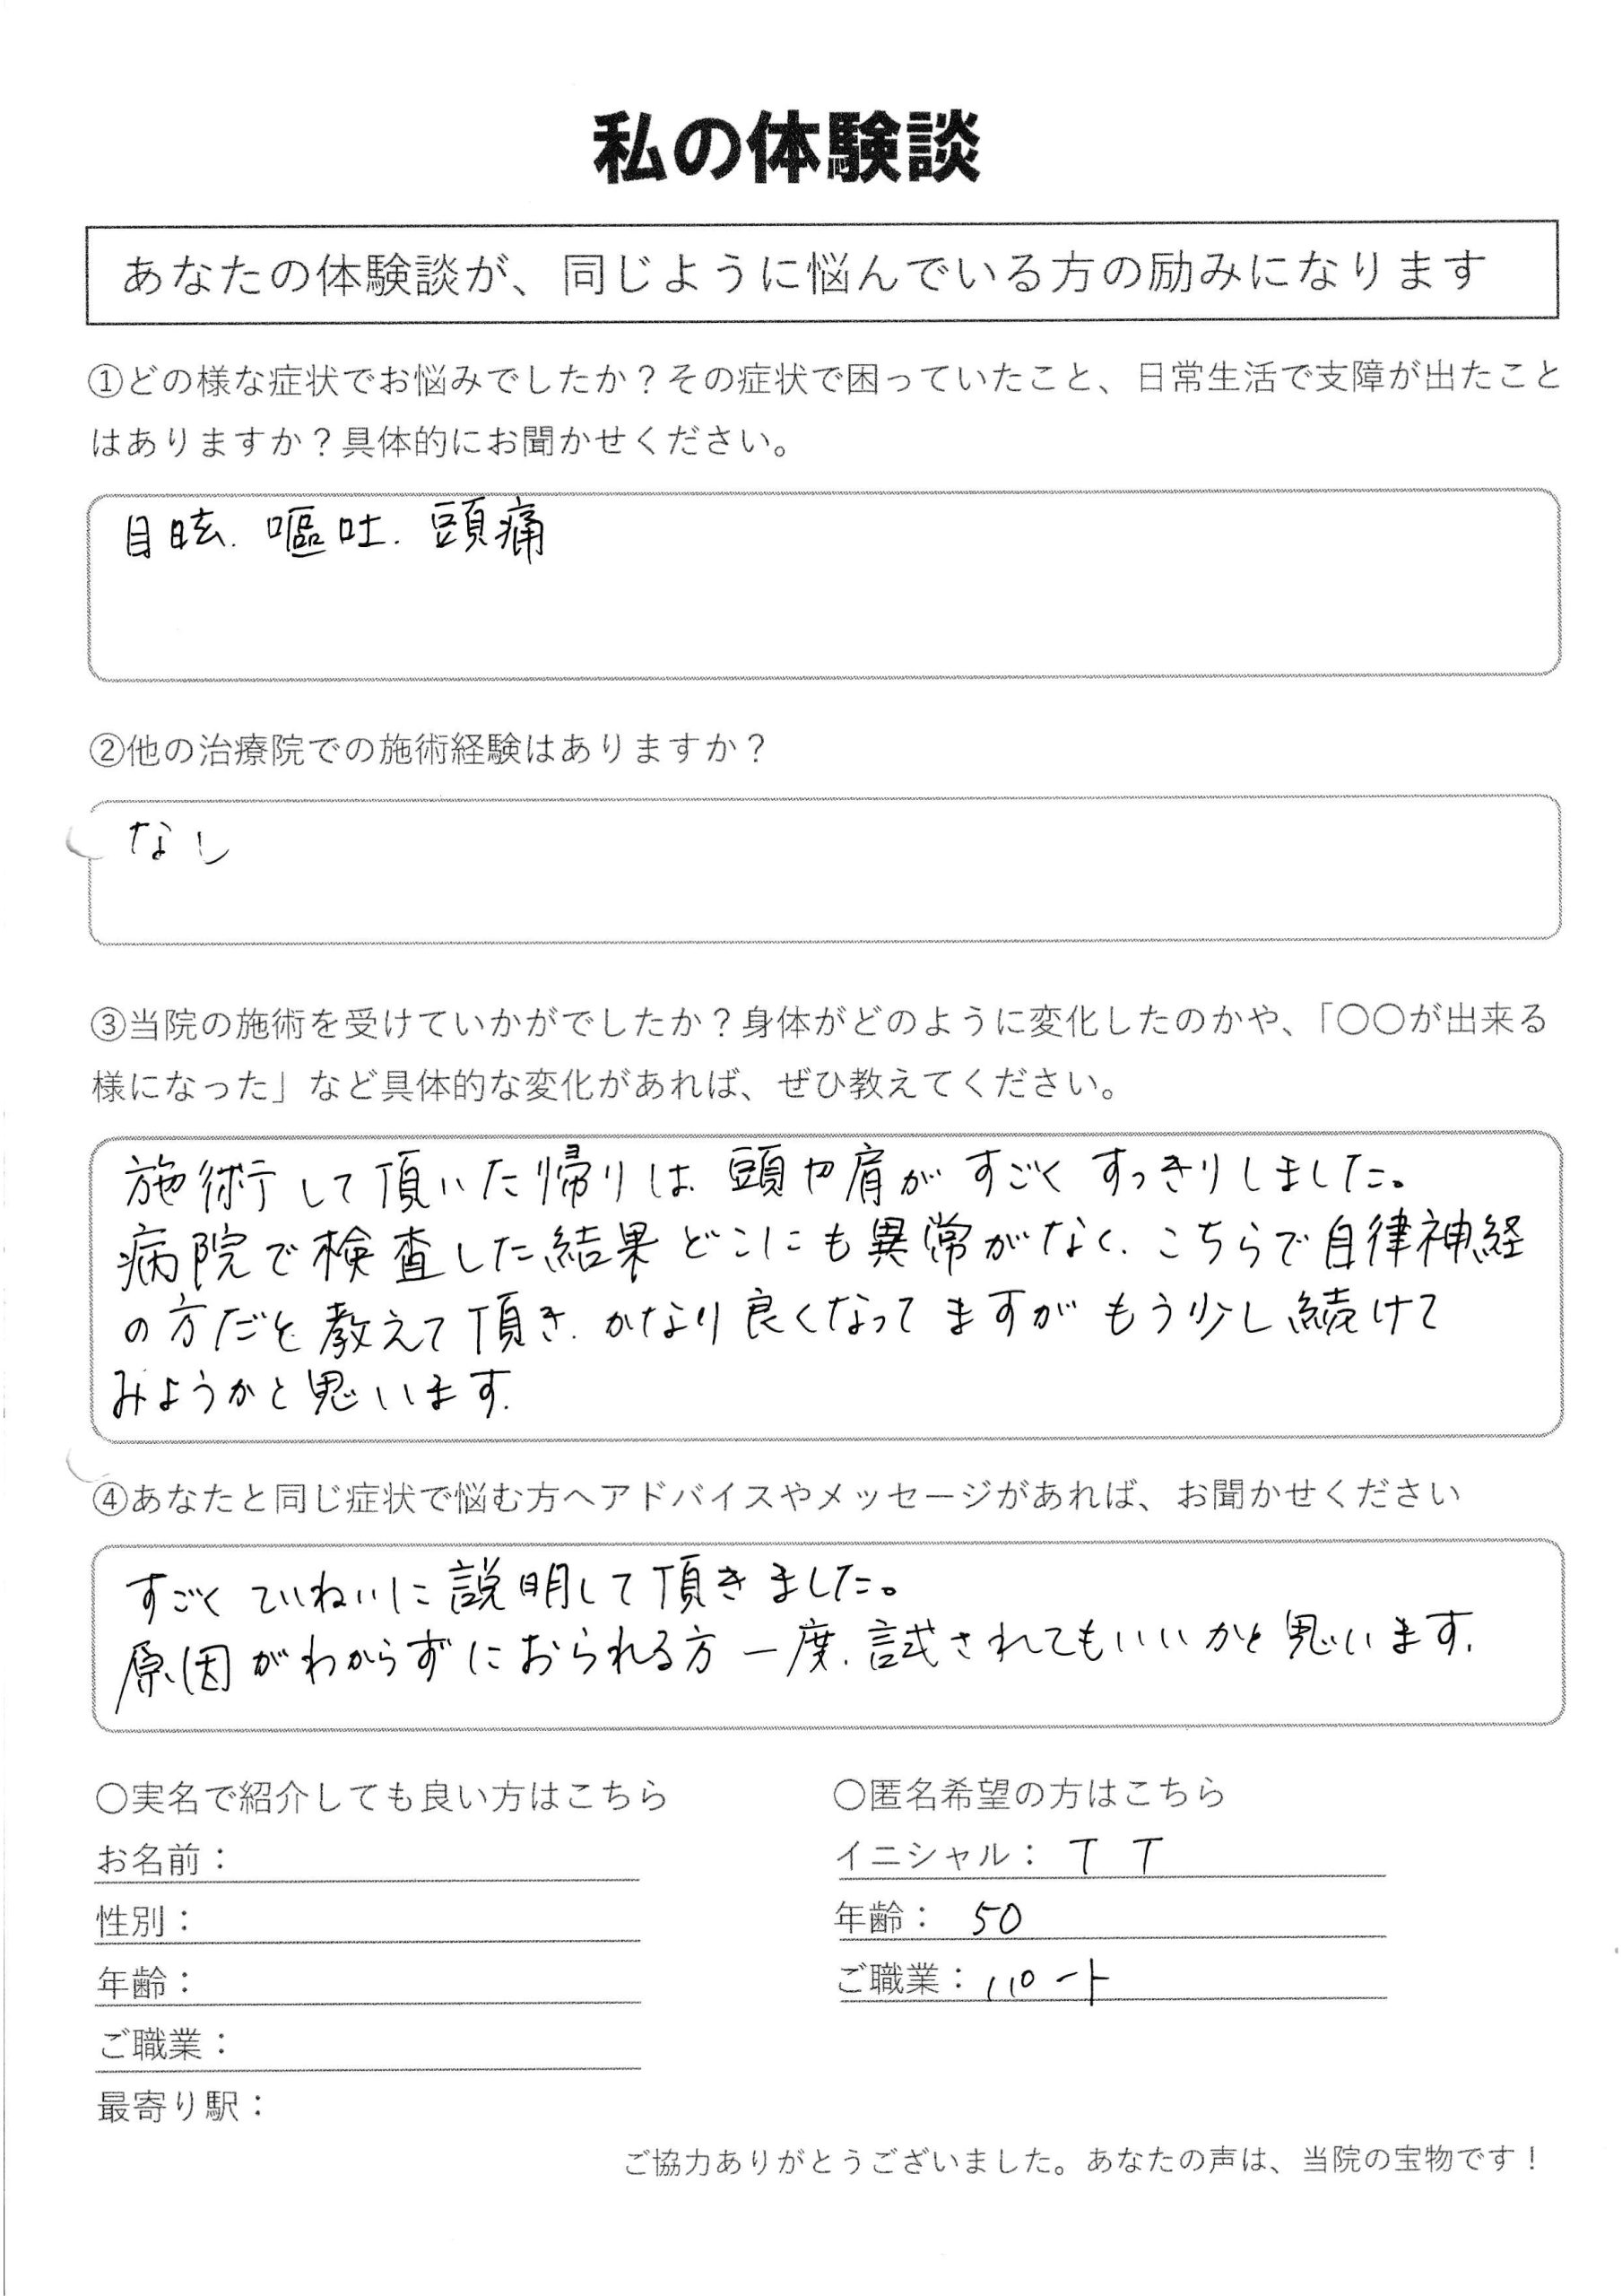 私の体験談
あなたの体験談が、同じように悩んでいる方の励みになります
①どの様な症状でお悩みでしたか？その症状で困っていたこと、日常生活で支障が出たこと
はありますか？具体的にお聞かせください。
目眩. 嘔吐. 頭痛
②他の治療院での施術経験はありますか？
なし
③当院の施術を受けていかがでしたか？身体がどのように変化したのかや、「〇〇が出来る
様になった」など具体的な変化があれば、ぜひ教えてください。
施術して頂いた帰りは、頭や肩がすごくすっきりしました。
病院で検査した結果どこにも異常がなく、こちらで自律神経
の方だと教えて頂き、かなり良くなってますがもう少し続けて
みようかと思います.
④あなたと同じ症状で悩む方へアドバイスやメッセージがあれば、お聞かせください
すごくていねいに説明して頂きました。
原因がわからずにおられる方一度、試されてもいいかと思います.
〇実名で紹介しても良い方はこちら
お名前：
性別：
年齢：
ご職業：
最寄り駅：
〇匿名希望の方はこちら
イニシャル： T T
年齢： 50
ご職業：パート
ご協力ありがとうございました。あなたの声は、当院の宝物です！